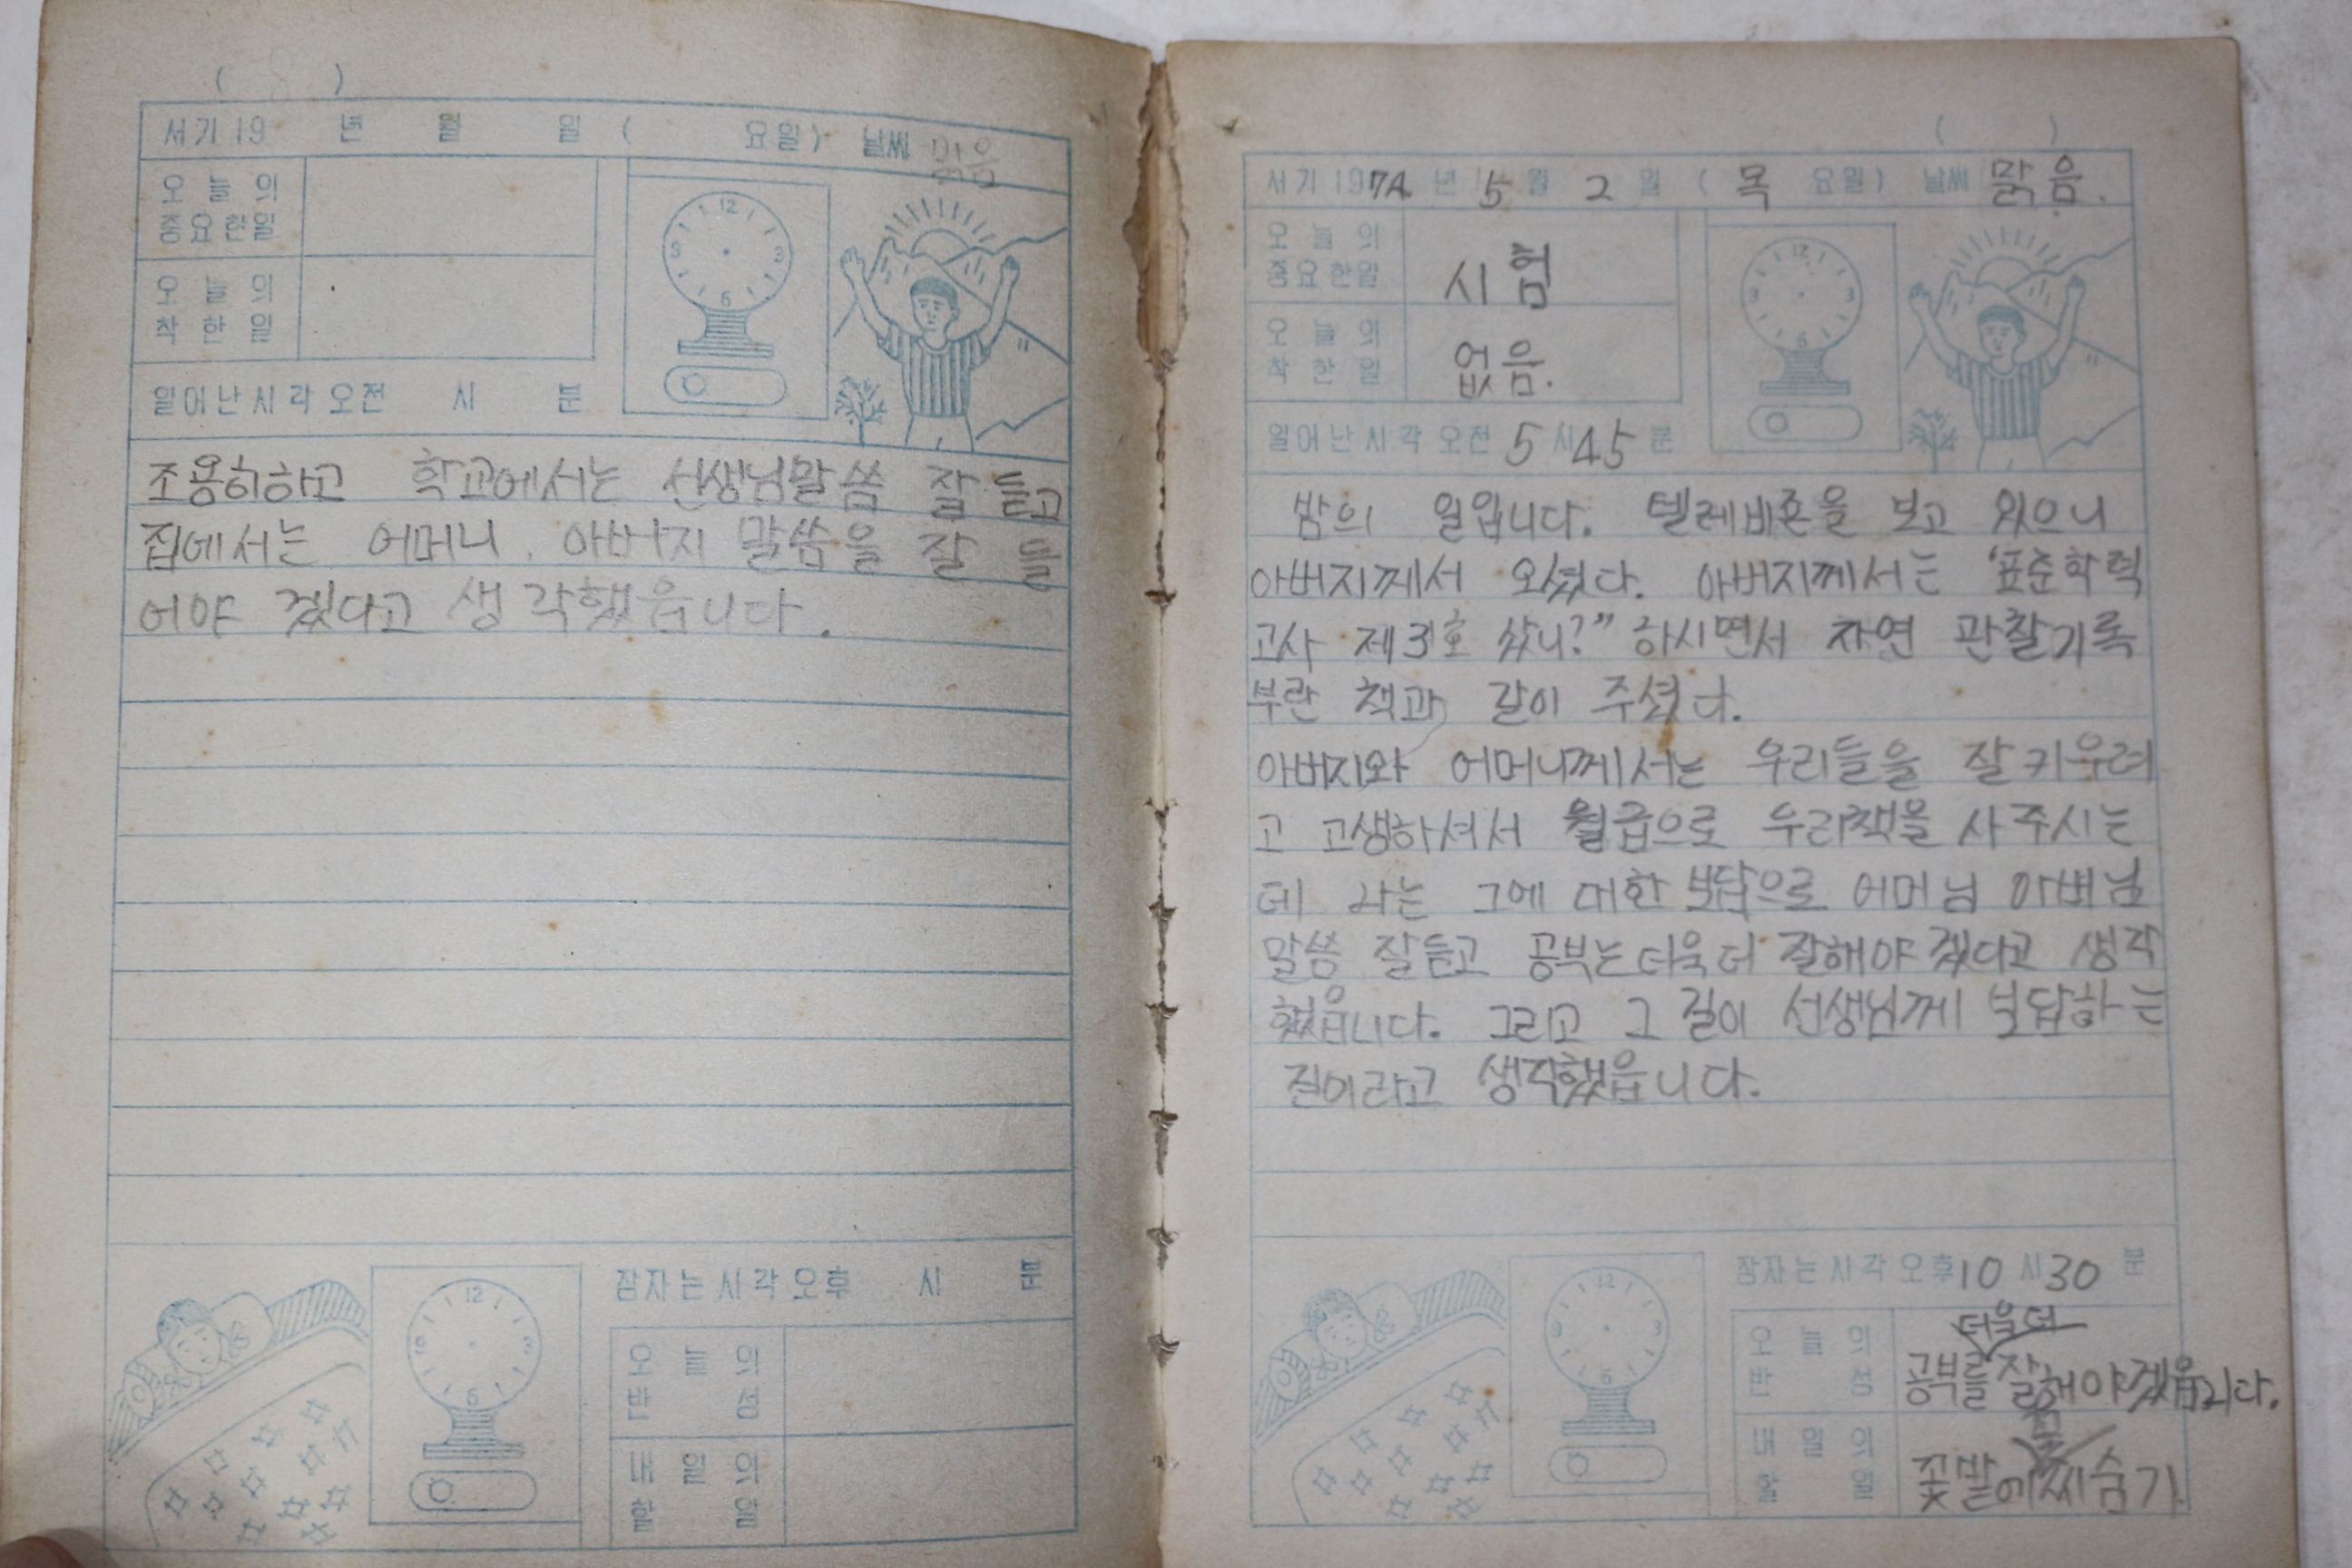 ( 8 )
서기 19 년 월 일 ( 요일) 날씨 맑음
오늘의
중요한일
오늘의
착한일
일어난시각 오전 시 분
12
3
6
9
조용히하고 학교에서는 선생님말씀 잘 듣고
집에서는 어머니, 아버지 말씀을 잘 들
어야 겠다고 생각했읍니다.
12
3
6
9
잠자는시각 오후 시 분
오늘의
반성
내일의
할일
( )
서기 1974년 5월 2일 (목요일) 날씨 맑음.
오늘의
중요한일
시험
오늘의
착한일
없음.
일어난시각 오전 5시 45분
12
3
6
9
밤의 일입니다. 텔레비죤을 보고 있으니
아버지께서 오셨다. 아버지께서는 "표준학력
고사 제3호 샀니?" 하시면서 자연 관찰기록
부란 책과 같이 주셨다.
아버지와 어머니께서는 우리들을 잘 키우려
고 고생하셔서 월급으로 우리책을 사 주시는
데 나는 그에 대한 보답으로 어머님 아버님
말씀 잘듣고 공부는 더욱 더 잘해야 겠다고 생각
했읍니다. 그리고 그 길이 선생님께 보답하는
길이라고 생각했읍니다.
12
3
6
9
잠자는시각 오후 10시 30분
오늘의
반성
더욱더
공부를 잘해야겠읍니다.
내일의
할일
꽃밭에 씨숨기